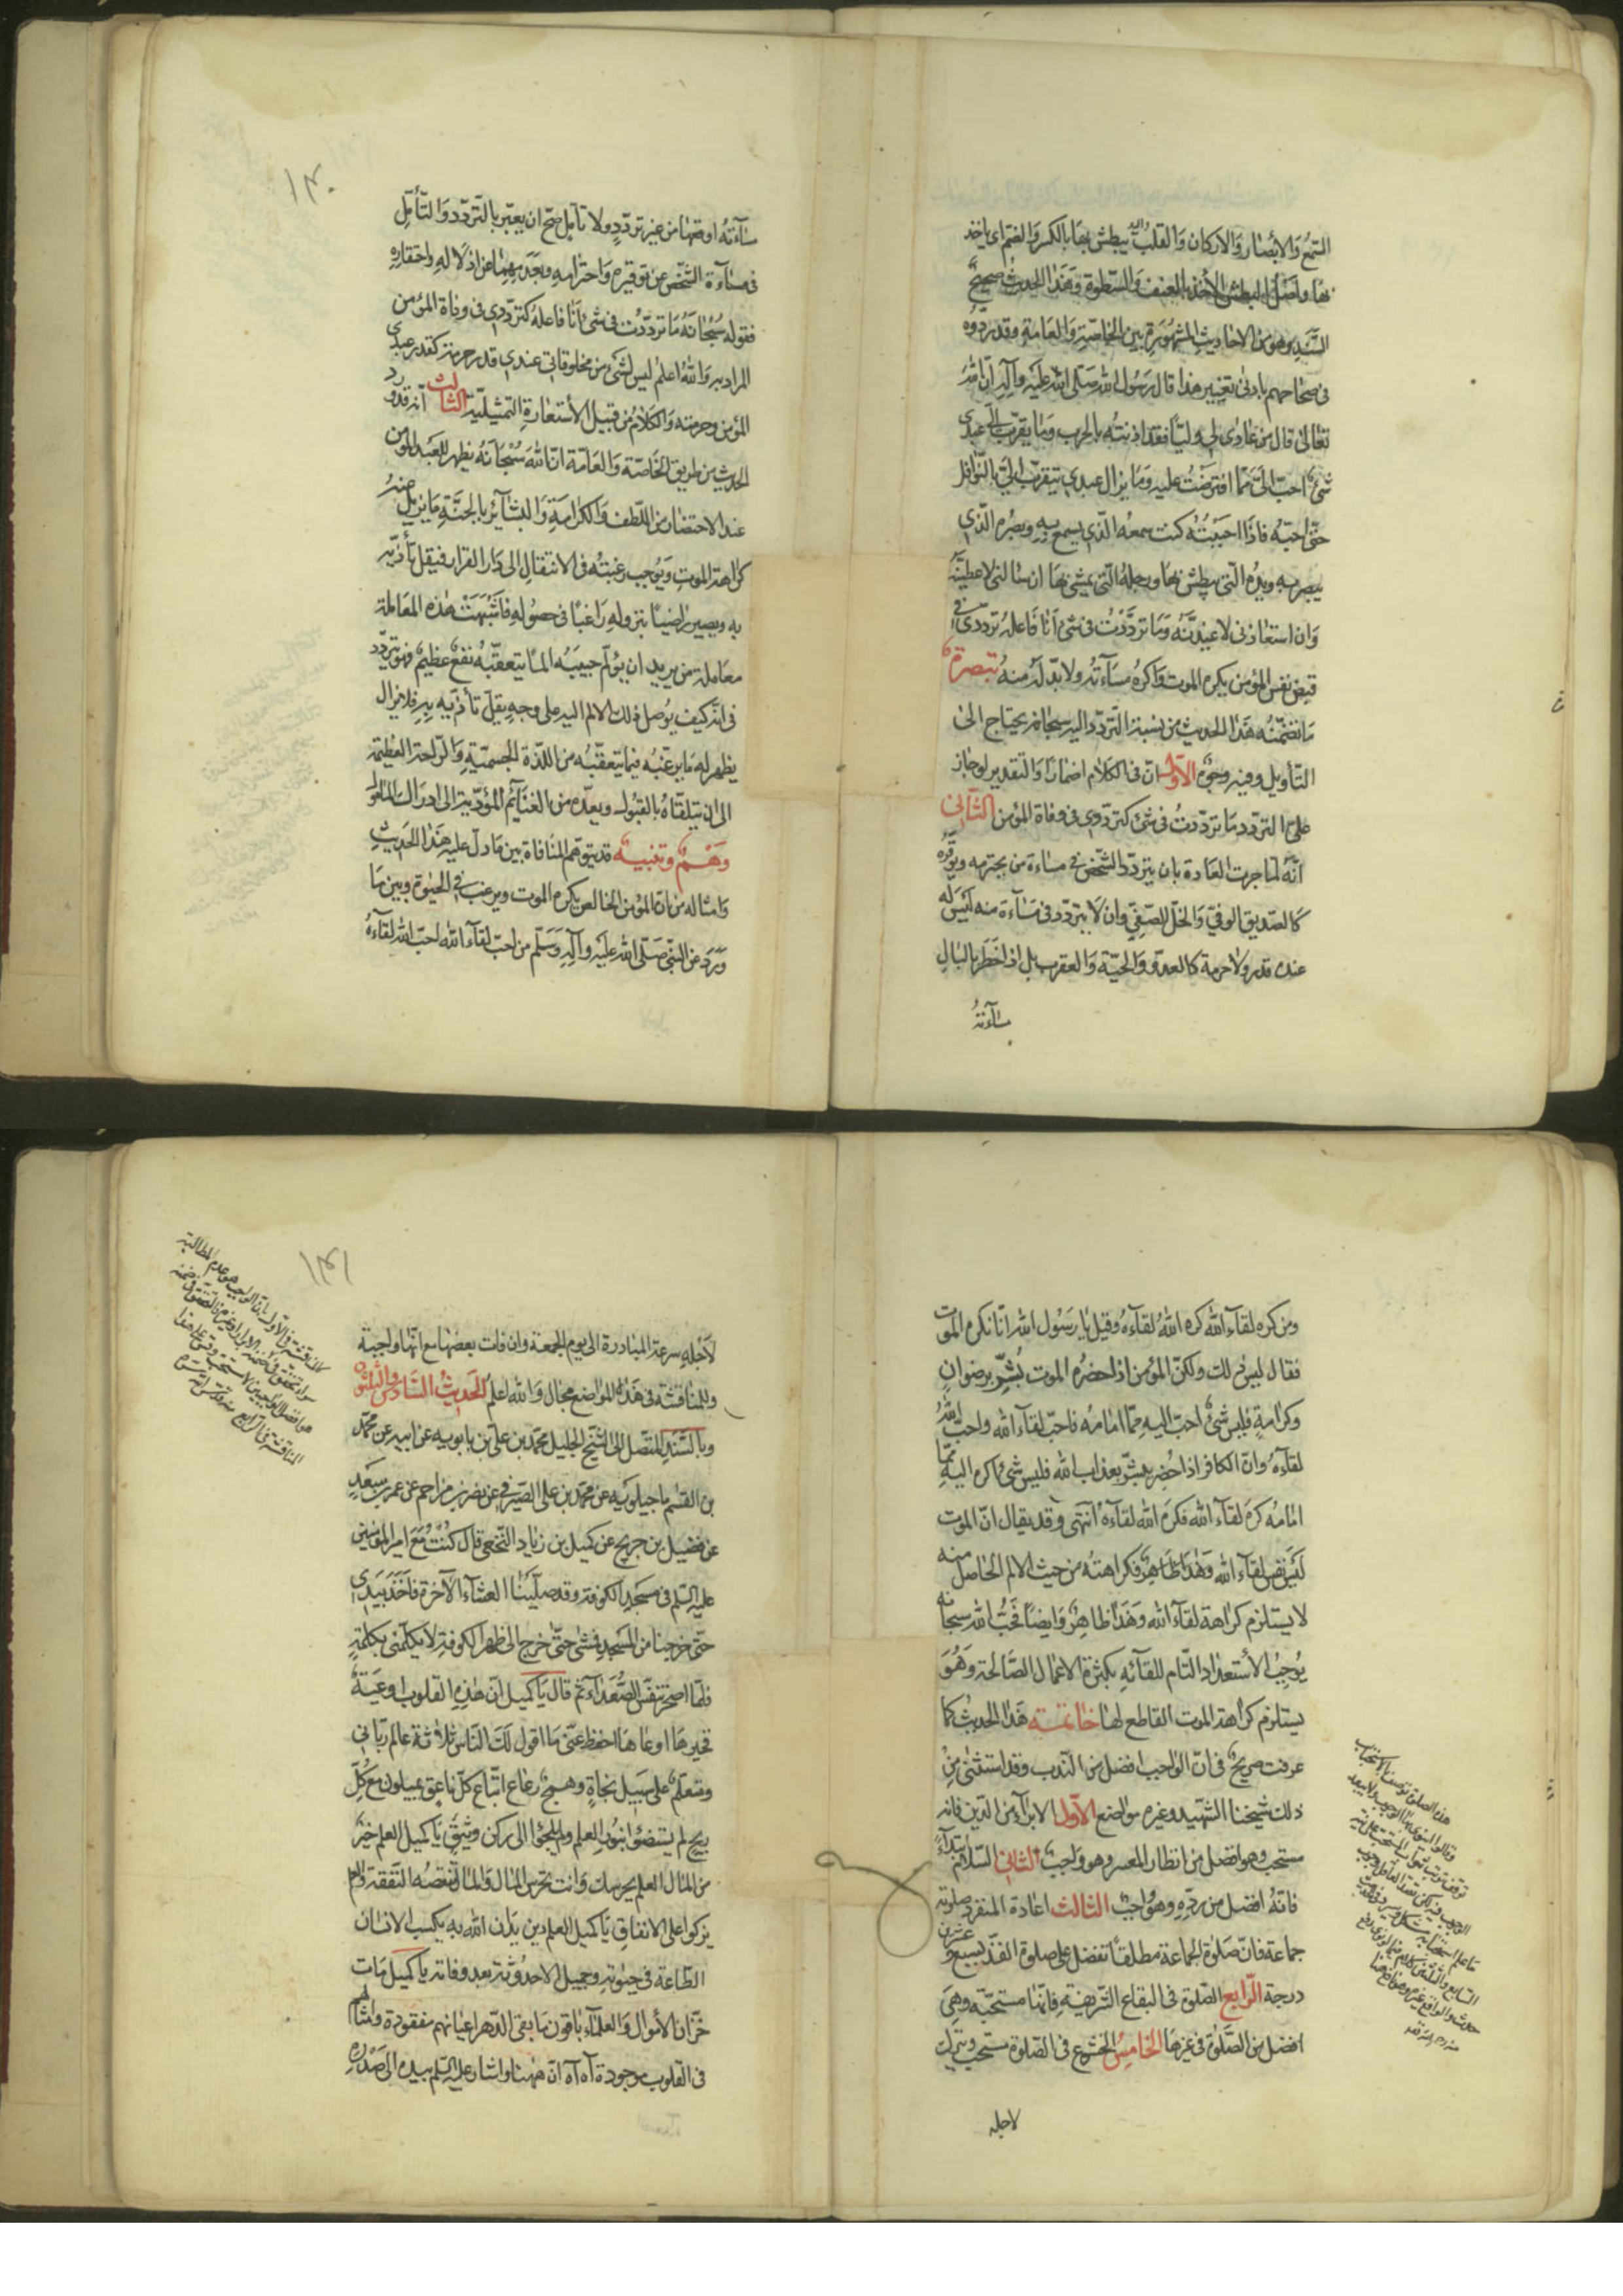 السّمع والأبصار والاركان والقلب اليه يبطش بها بالكسر والضم اى ياخذ
بها واصل البطش الأخذ بالعنف والسّطوة وهذا الحديث صحيح
السَّند وهو من الاحاديث المشهورة بين الخاصّة والعامة وقد رووه
فى صحاحهم بادنى تغيير هذا قال رسول الله صلّى الله عليه وآله انّ الله
تعالى قال من عادى لى وليّا فقد اذنته بالحرب وما يقرّب الىّ عبدى
شئ احبّ الىّ ممّا افترضت عليه وما يزال عبدى يتقرّب الىّ بالنّوافل
حتّى احبّه فاذا احببته كنت سمعه الّذى يسمع به وبصره الّذى
يبصر به ويده الّتى يبطش بها ورجله الّتى يمشى بها ان سالنى لاعطينّه
وان استعاذنى لاعيذنّه وما تردّدت فى شئ أنا فاعله تردّدى فى
قبض نفس المؤمن يكره الموت واكره مساءته ولابدّ له منه تبصرة
ما تضمّنه هذا الحديث من نسبة التّردّد اليه سبحانه يحتاج الى
التّأويل وفيه وجوه الأوّل انّ فى الكلام اضمارا والتقدير لو جاز
علىّ التردد ما تردّدت فى شئ كتردّدى فى وفاة المؤمن الثّانى
انّه لمّا جرت العادة بان يتردّد الشّخص فى مساءة من يحترمه ويوقّره
كالصّديق الوفىّ والخلّ الصّفىّ وان لا يتردّد فى مساءة منه ليس له
عنده قدر ولا حرمة كالعدوّ والحيّة والعقرب بل اذا خطر بالبال
مساءته
١٤٠
مساءته اوقعها من غير تردّد ولا تأمّل صحّ ان يعبّر بالتّردّد والتّأمّل
فى مساءة الشّخص عن توقيره واحترامه وبعدمهما عن اذلاله واحتقاره
فقوله سبحانه ما تردّدت فى شئ أنا فاعله كتردّدى فى وفاة المؤمن
المراد به والله اعلم ليس لشئ من مخلوقاتى عندى قدر وحرمة كقدر عبدى
المؤمن وحرمته والكلام من قبيل الأستعارة التمثيليّة الثالث انّه قد ورد
الحديث من طريق الخاصّة والعامّة انّ الله سبحانه يظهر للعبد المؤمن
عند الاحتضار من اللّطف والكرامة والبشاير بالجنّة ما يزيل عنه
كراهة الموت ويوجب رغبته فى الانتقال الى دار القرار فيقلّ تأذّيه
به ويصير راضيا بنزوله راغبا فى حصوله فأشبهت هذه المعاملة
معاملة من يريد ان يؤلم حبيبه الما يتعقّبه نفع عظيم فهو يتردّد
فى انّه كيف يوصل ذلك الالم اليه على وجه يقلّ تأذّيه به فلا يزال
يظهر له ما يرغّبه فيما يتعقّبه من اللذّة الجسميّة والرّاحة العظيمة
الى ان يتلقّاه بالقبول ويعدّه من الغنايم المؤدّية الى ادراك المأمول
وهم وتنبيه قد يتوهّم المنافاة بين ما دلّ عليه هذا الحديث
وامثاله من انّ المؤمن الخالص يكره الموت ويرغب فى الحيوة وبين ما
ورد عن النّبىّ صلّى الله عليه وآله وسلّم من احبّ لقاء الله احبّ الله لقاءه
ومن كره لقاء الله كره الله لقاءه وقيل يا رسول الله انّا نكره الموت
فقال ليس ذلك ولكنّ المؤمن اذا حضره الموت بُشّر برضوان
وكرامة فليس شئ احبّ اليه ممّا امامه فاحبّ لقاء الله واحبّ الله
لقاءه وانّ الكافر اذا حُضر بُشّر بعذاب الله فليس شئ اكره اليه ممّا
امامه كره لقاء الله فكره الله لقاءه انتهى وقد يقال انّ الموت
ليس نفس لقاء الله وهذا ظاهر فكراهته من حيث الالم الحاصل منه
لا يستلزم كراهة لقاء الله وهذا ظاهر وايضا فحبّ الله سبحانه
يوجب الأستعداد التّام للقائه بكثرة الاعمال الصّالحة وهو
يستلزم كراهة الموت القاطع لها خاتمة هذا الحديث كما
عرفت صريح فى انّ الواجب افضل من النّدب وقد استثنى من
ذلك شيخنا الشّهيد وغيره مواضع الأوّل الابراء من الدّين فانه
مستحب وهو افضل من انظار المعسر وهو واجب الثانى السّلام ابتداءً
فانّه افضل من ردّه وهو واجب الثالث اعادة المنفرد صلوته
جماعة فانّ صلوة الجماعة مطلقا تفضل على صلوة الفذّ بسبع وعشرين
درجة الرّابع الصّلوة فى البقاع الشّريفة فانّها مستحبّة وهى
افضل من الصّلوة فى غيرها الخامس الخشوع فى الصّلوة مستحب ويترك
لاجله
١٤١
لأجله سرعة المبادرة الى يوم الجمعة وان فات بعضها مع انّها واجبة
وللمناقشة فى هذه المواضع مجال والله اعلم الحديث السّادس والثلثون
وبالسّند المتّصل الى الشّيخ الجليل محمّد بن علىّ بن بابويه عن ابيه عن محمّد
بن القسم ماجيلويه عن محمّد بن على الصّيرفى عن نصر بن مزاحم عن عمر بن سعد
عن فضيل بن خديج عن كميل بن زياد النّخعى قال كنت مع امير المؤمنين
عليه السّلم فى مسجد الكوفة وقد صلّينا العشاء الآخرة فاخذ بيدى
حتّى خرجنا من المسجد فمشى حتّى خرج الى ظهر الكوفة لا يكلّمنى بكلمة
فلمّا اصحر تنفّس الصّعداء ثمّ قال يا كميل انّ هذه القلوب اوعية
فخيرها اوعاها احفظ عنّى ما اقول لك النّاس ثلاثة عالم ربّانى
ومتعلّم على سبيل نجاة وهمج رعاع اتباع كلّ ناعق يميلون مع كلّ
ريح لم يستضيئوا بنور العلم ولم يلجئوا الى ركن وثيق يا كميل العلم خير
من المال العلم يحرسك وانت تحرس المال والمال تنقصه النّفقة والعلم
يزكوا على الانفاق يا كميل العلم دين يدان الله به يكسب الانسان
الطّاعة فى حيوته وجميل الاحدوثة بعد وفاته يا كميل مات
خزّان الأموال والعلماء باقون ما بقى الدّهر اعيانهم مفقودة وامثالهم
فى القلوب موجودة آه آه انّ ههنا واشار عليه السّلم بيده الى صدره